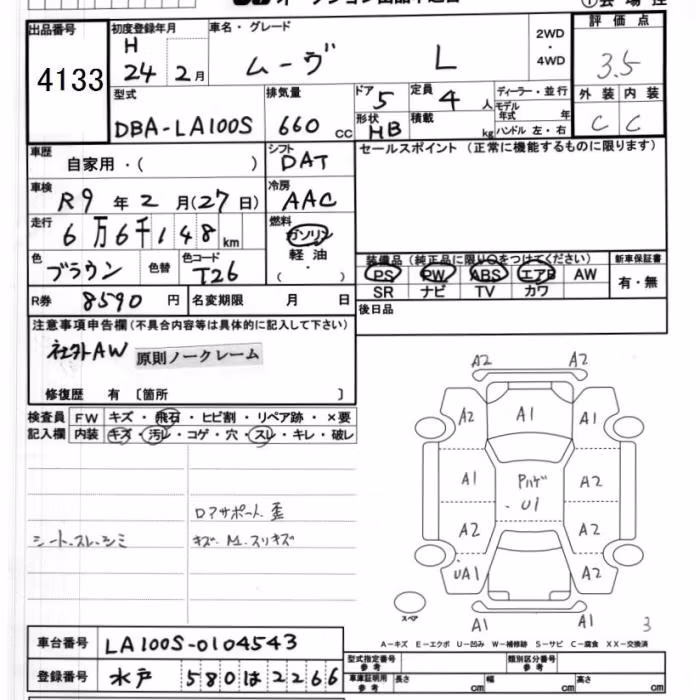 出品番号 初度登録年月 車名・グレード 2WD・4WD 評価点
4133 H 24 2月 ムーヴ L 3.5
型式 排気量 ドア 5 定員 4人 ディーラー・並行 外装 内装
DBA-LA100S 660cc 形状 HB 積載 kg モデル年式 年 C C
ハンドル 左・右
車歴 自家用・( ) シフト DAT セールスポイント(正常に機能するものに限ります)
車検 R9年2月(27日) 冷房 AAC
走行 6万6千148km 燃料 ガソリン
軽油
・
( )
色 ブラウン 色替 色コード T26 装備品(純正品に限り○をつけてください) 新車保証書
PS PW ABS エアB AW 有・無
SR ナビ TV カワ
R券 8590円 名変期限 月 日 後日品
注意事項申告欄(不具合内容等は具体的に記入して下さい)
社外AW 原則ノークレーム
修復歴 有 〔箇所 〕
検査員 FW キズ・飛石・ヒビ割・リペア跡・×要
記入欄 内装 キズ・汚レ・コゲ・穴・スレ・キレ・破レ
Dアサポート歪
シートスレ・シミ キズ M.スリキズ
A2 A2
A2 A1 A2
A1 Pハゲ A2
U1
A2 A2
UA1 A2
スペア A1 A1 3
A-キズ E-エクボ U-凹み W-補修跡 S-サビ C-腐食 XX-交換済
車台番号 LA100S-0104543
型式指定番号 参考 類別区分番号 参考
登録番号 水戸 580 は 2266
車庫証明用 参考 長さ cm 幅 cm 高さ cm